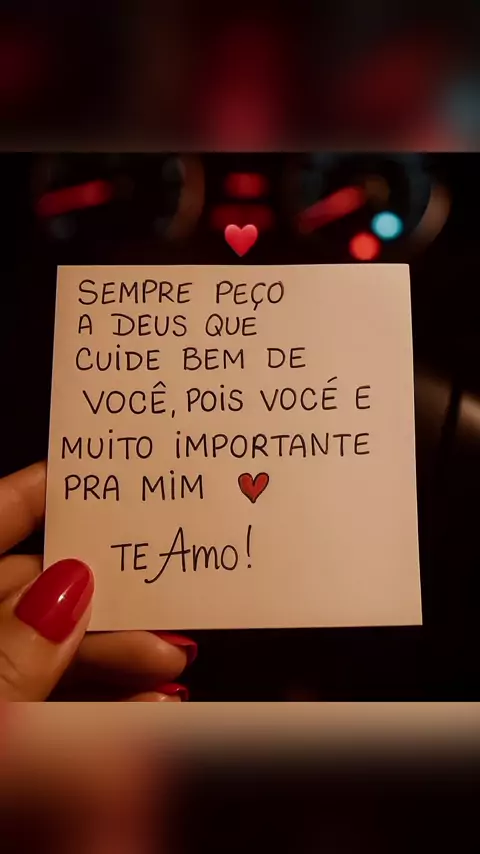 SEMPRE PEÇO
A DEUS QUE
CUIDE BEM DE
VOCÊ, POIS VOCÉ E
MUITO IMPORTANTE
PRA MIM
TE AMO!